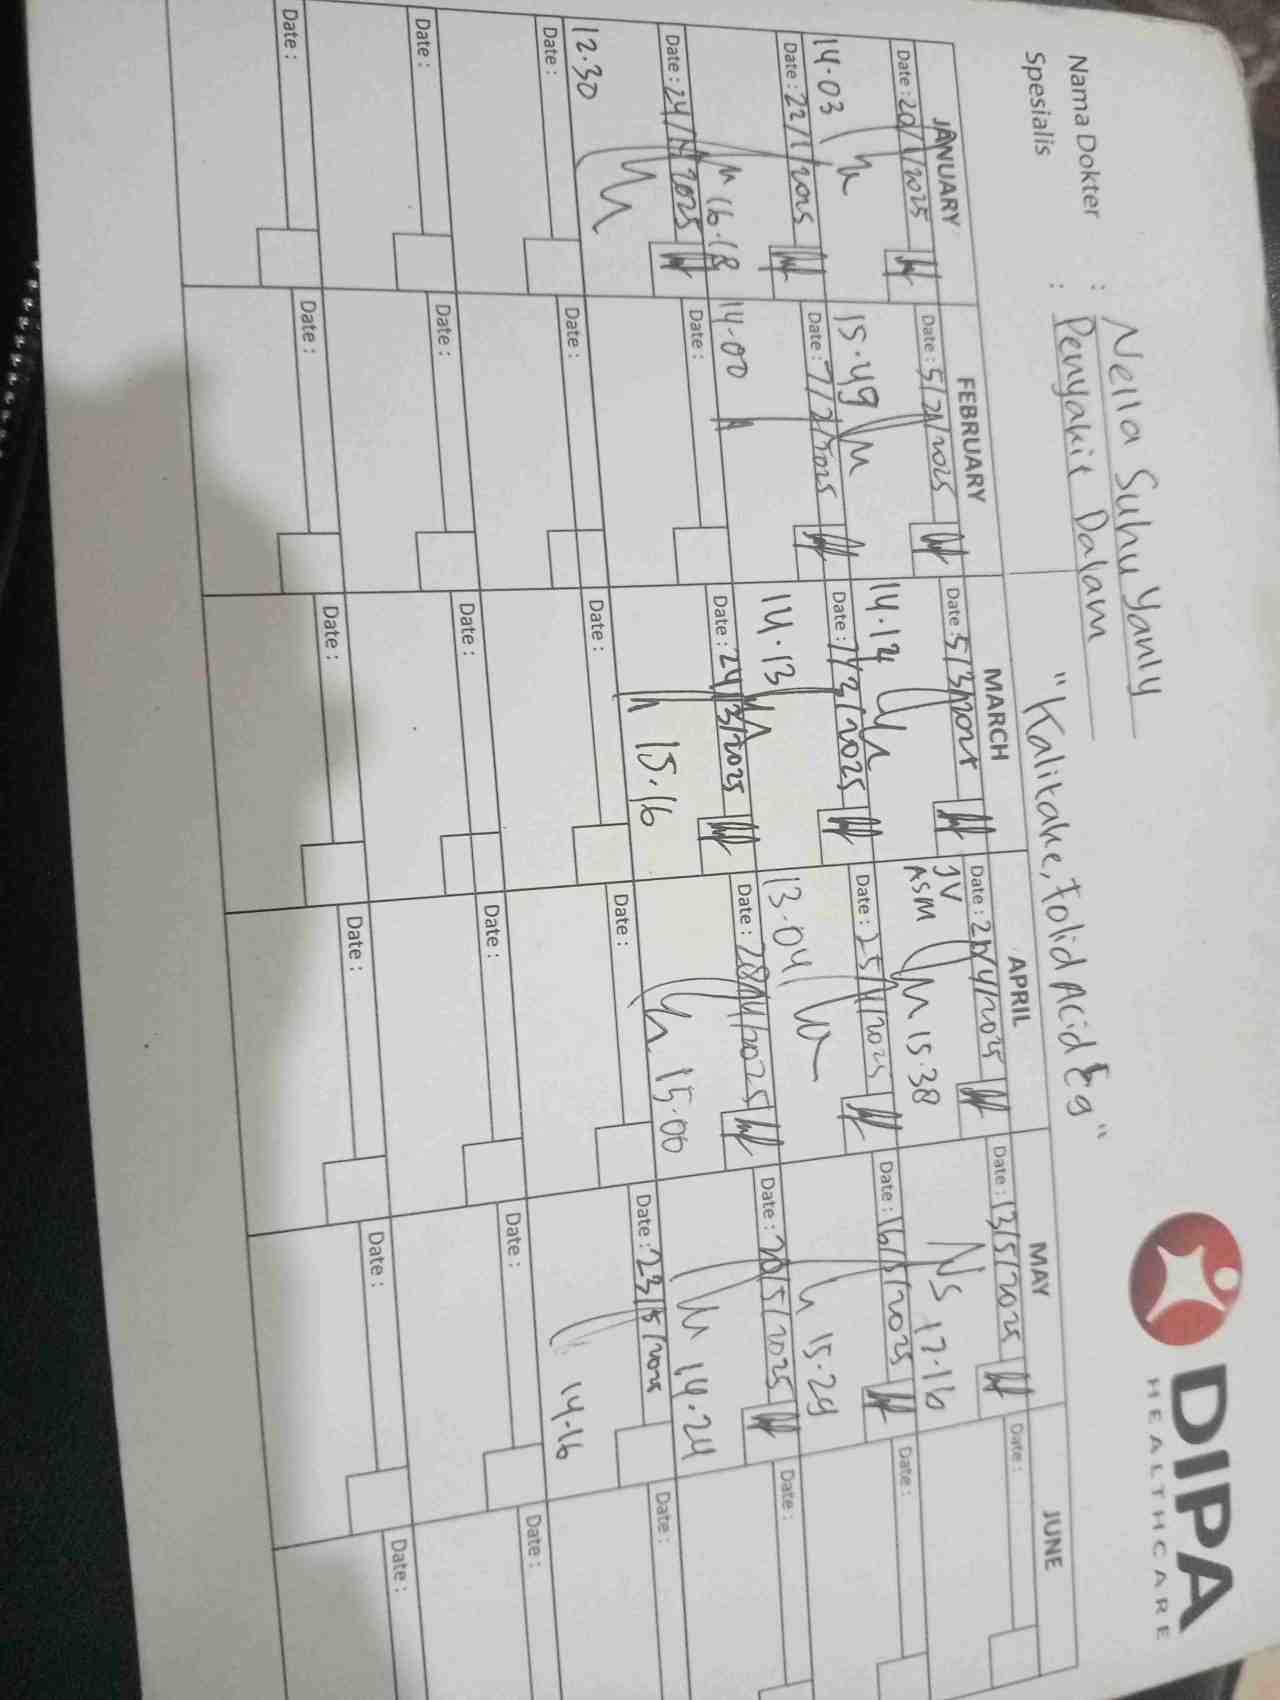 DIPA
HEALTHCARE
Nama Dokter : Nella Suhu Yanly
Spesialis : Penyakit Dalam
"Kalitake, Folid Acid Eg"
JANUARY FEBRUARY MARCH APRIL MAY JUNE
Date : 20/1/2025 Date : 5/2/2025 Date : 5/3/2025 Date : 21/4/2025 Date : 13/5/2025 Date :
14.03 15.49 14.12 JV ASM 15.38 NS 17.16
Date : 22/1/2025 Date : 7/2/2025 Date : 7/3/2025 Date : 25/4/2025 Date : 16/5/2025 Date :
16.18 14.00 14.13 13.04 15.29
Date : 24/1/2025 Date : Date : 24/3/2025 Date : 28/4/2025 Date : 20/5/2025 Date :
12.30 15.16 15.00 14.24
Date : Date : Date : Date : Date : 23/5/2025 Date :
14.16
Date : Date : Date : Date : Date : Date :
Date : Date : Date : Date : Date : Date :